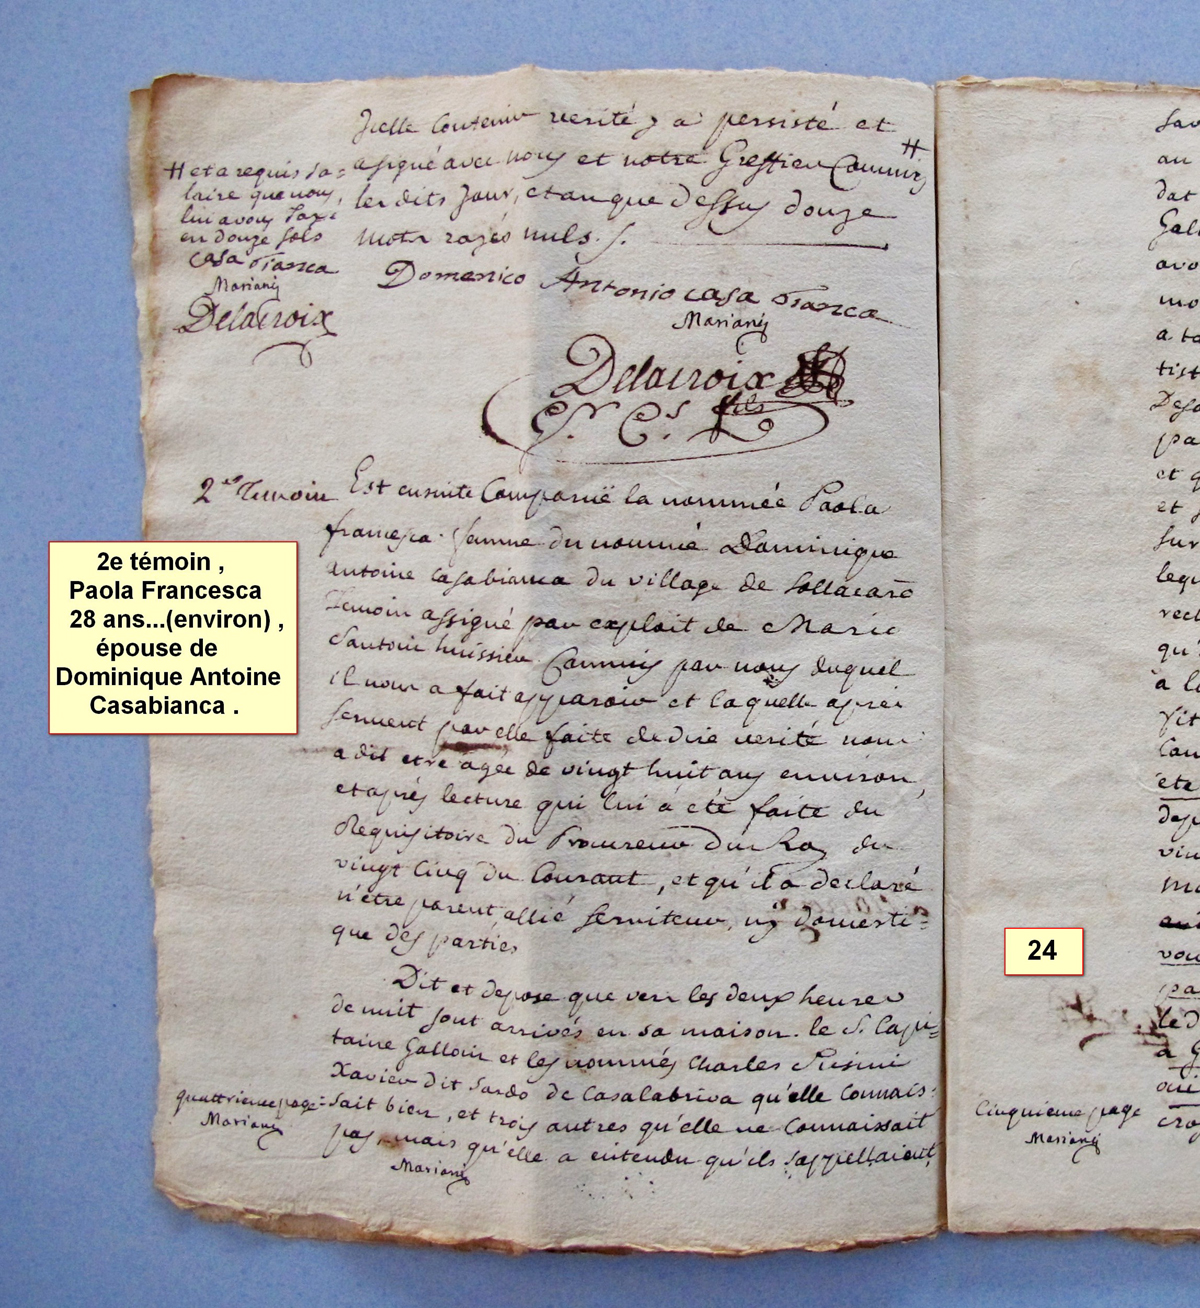 Icelle Contenir verité, y a persisté et
a signé avec nous et notre Greffier Commis #
les dits Jour, et an que dessus douze
mots rayés nuls. /.
# et a requis sa=
laire que nous
lui avons taxé
en douze sols
casa bianca
Mariani
Delacroix
Domenico Antonio casa bianca
Mariani
Delacroix
fils
2e Temoin
Est ensuite Comparuë la nommée Paola
francesca femme du nommé Dominique
antoine Casabianca du village de Sollacaro
Temoin assigné par exploit de Marie
Santoni huissier Commis par nous duquel
il nous a fait apparoir et laquelle aprés
serment par elle faite de dire verité nous
a dit etre agée de vingt huit ans environ,
et aprés lecture qui lui a été faite du
Requisitoire du Procureur du Roy du
vingt Cinq du Courant, et qu'il a declaré
n'être parent allié serviteur, ny domesti=
que des parties
Dit et depose que vers les deux heures
de nuit sont arrivés en sa maison le S. Capi=
taine Galloni et les nommés Charles Pisini
Xavier dit Sardo de Casalabriva qu'elle Connais=
sait bien, et trois autres qu'elle ne Connaissait
pas, mais qu'elle a entendu qu'ils s'appellaient
Mariani
quattrieme page
Mariani
2e témoin ,
Paola Francesca
28 ans...(environ) ,
épouse de
Dominique Antoine
Casabianca .
24
Cinquieme page
Mariani